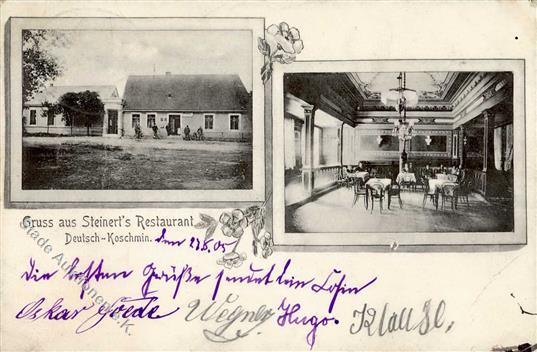 Gruss aus Steinert's Restaurant
Deutsch-Koschmin. den 27.6.05
Die besten Grüße sendet dein
Oskar Goede Wegner Hugo.